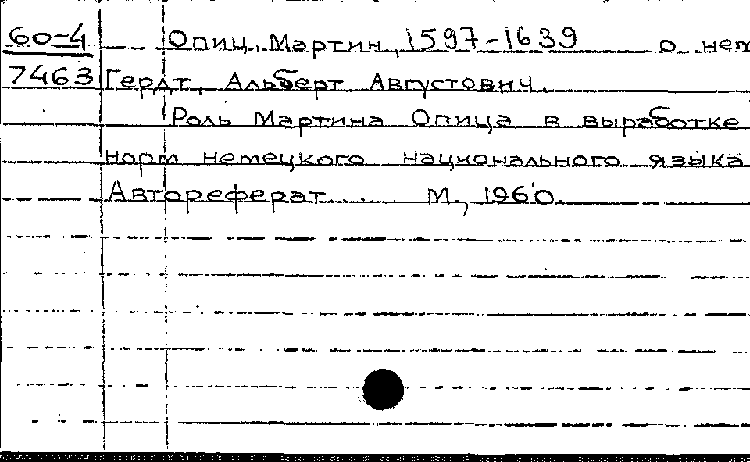 60-4 Опиц, Мартин, 1597-1639 о нем
7463 Гердт, Альберт Августович.
Роль Мартина Опица в выработке
норм немецкого национального языка
Автореферат... М., 1960.